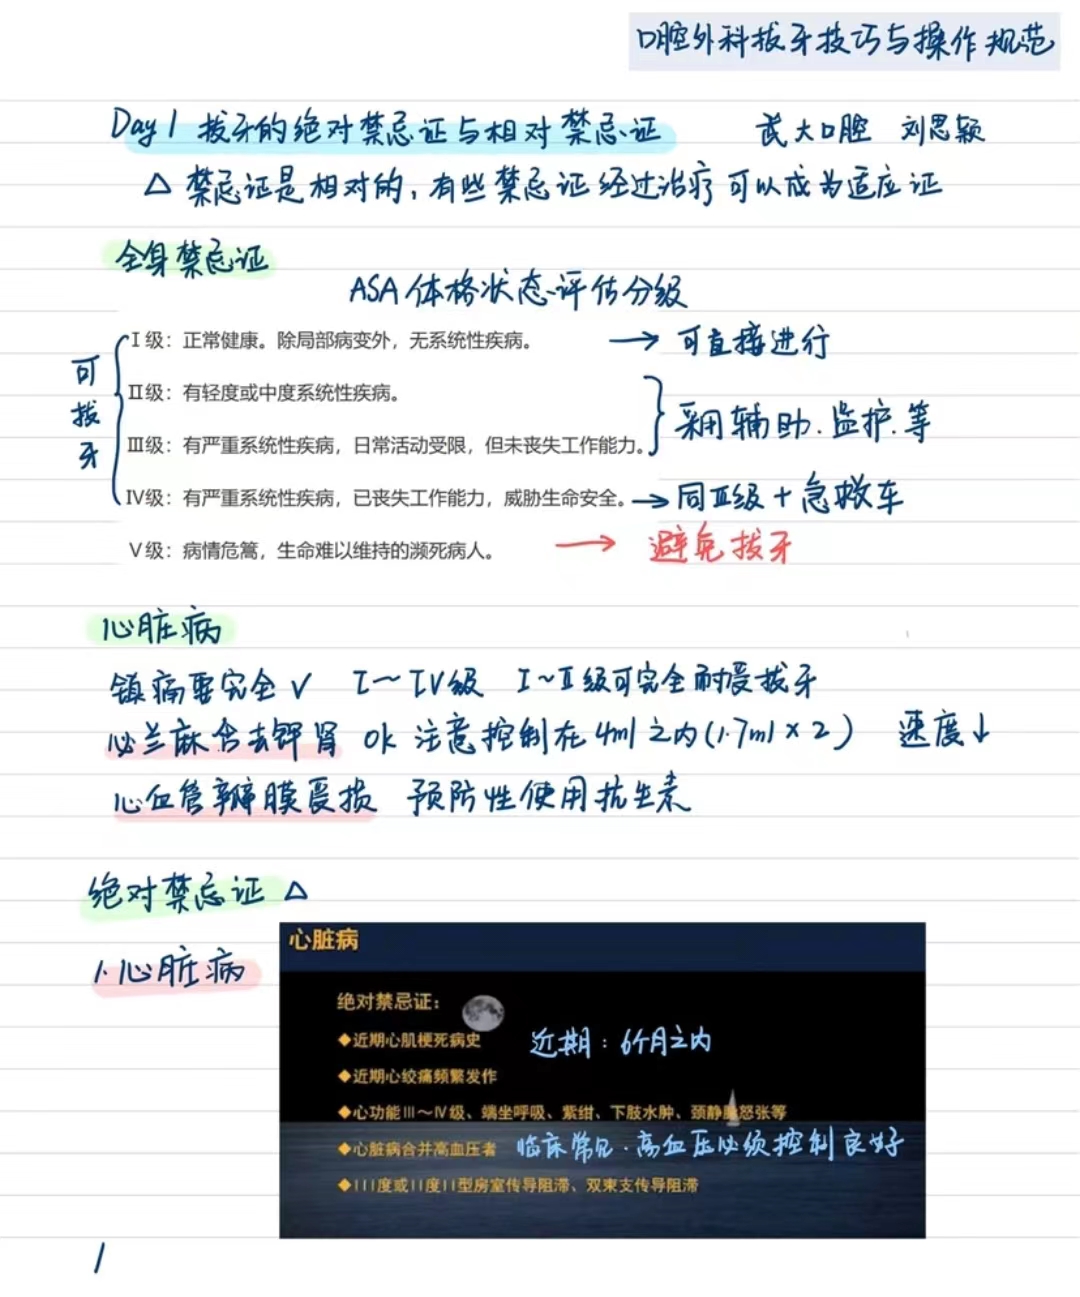 口腔外科拔牙技巧与操作规范
Day 1 拔牙的绝对禁忌证与相对禁忌证 武大口腔 刘思颖
△ 禁忌证是相对的，有些禁忌证经过治疗可以成为适应证
全身禁忌证
ASA体格状态评估分级
可拔牙
Ⅰ级：正常健康。除局部病变外，无系统性疾病。 → 可直接进行
Ⅱ级：有轻度或中度系统性疾病。
Ⅲ级：有严重系统性疾病，日常活动受限，但未丧失工作能力。
采用辅助.监护.等
Ⅳ级：有严重系统性疾病，已丧失工作能力，威胁生命安全。 → 同Ⅲ级＋急救车
Ⅴ级：病情危篙，生命难以维持的濒死病人。 → 避免拔牙
心脏病
镇痛要完全 √ Ⅰ～Ⅳ级 Ⅰ～Ⅱ级可完全耐受拔牙
必兰麻含去钾肾 ok 注意控制在4ml之内(1.7ml×2) 速度↓
心血管瓣膜受损 预防性使用抗生素
绝对禁忌证 △
1.心脏病
心脏病
绝对禁忌证：
◆近期心肌梗死病史 近期：6个月之内
◆近期心绞痛频繁发作
◆心功能Ⅲ～Ⅳ级、端坐呼吸、紫绀、下肢水肿、颈静脉怒张等
◆心脏病合并高血压者 临床常见.高血压必须控制良好
◆III度或II度II型房室传导阻滞、双束支传导阻滞
1